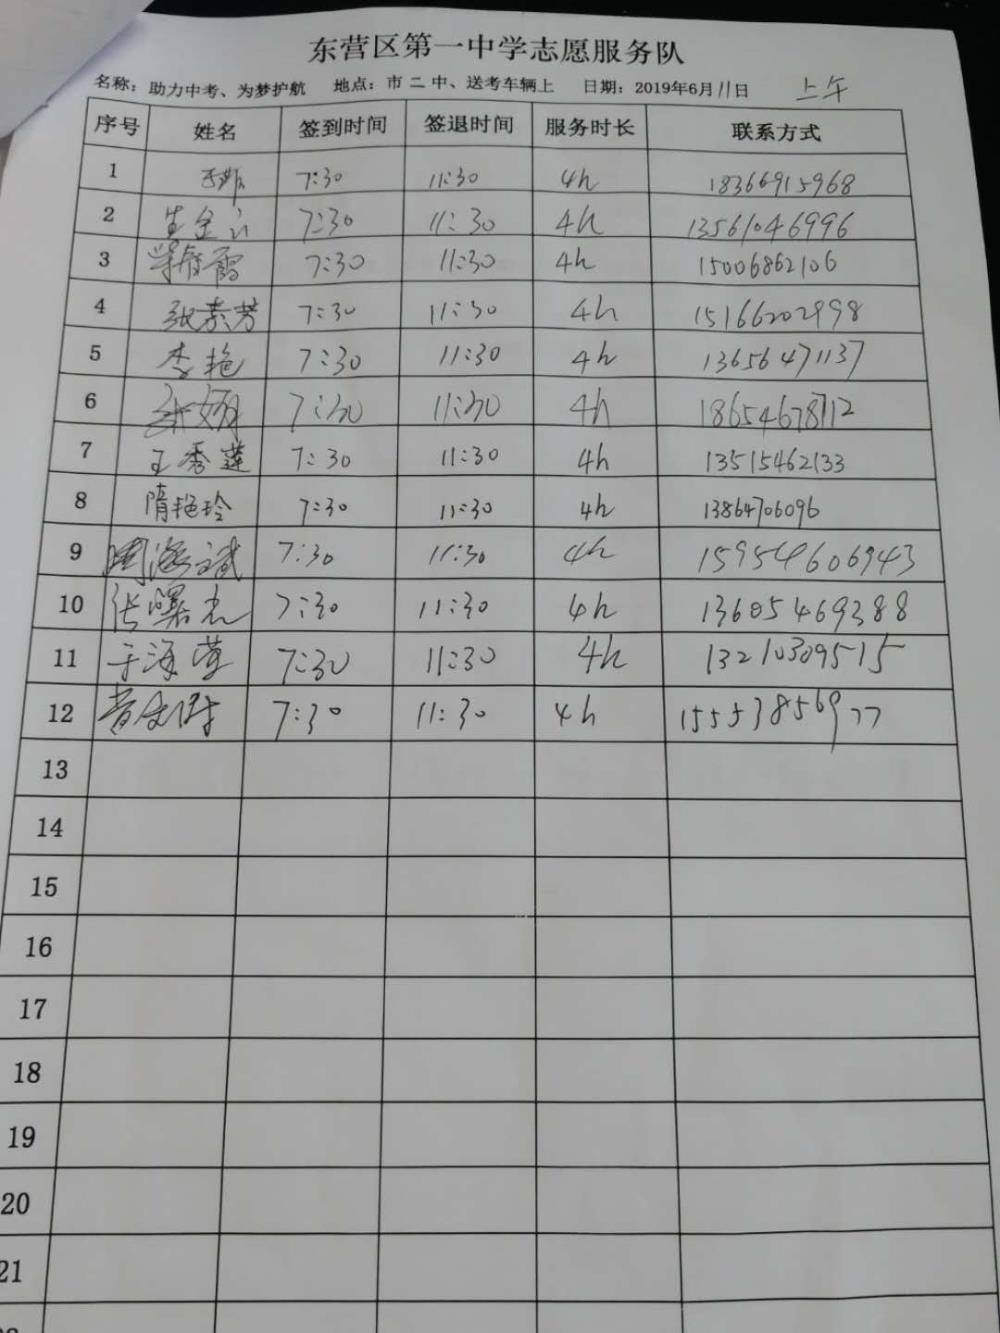 东营区第一中学志愿服务队
名称：助力中考、为梦护航 地点：市二中、送考车辆上 日期：2019年6月11日 上午
序号 姓名 签到时间 签退时间 服务时长 联系方式
1 7:30 11:30 4h 18366915968
2 7:30 11:30 4h 13561046996
3 7:30 11:30 4h 15006862106
4 张慕芳 7:30 11:30 4h 15166202998
5 李艳 7:30 11:30 4h 13656471137
6 7:30 11:30 4h 18654678712
7 王秀莲 7:30 11:30 4h 13515462133
8 隋艳玲 7:30 11:30 4h 13864706096
9 周海斌 7:30 11:30 4h 15954606943
10 7:30 11:30 4h 13605469388
11 于海莹 7:30 11:30 4h 13210309515
12 7:30 11:30 4h 15553856977
13
14
15
16
17
18
19
20
21